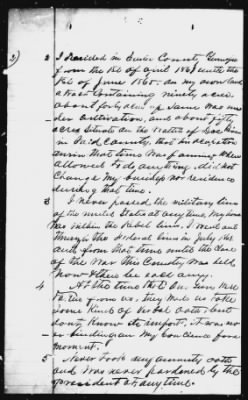 2)
2 I resided in County Georgia
from the 1st of April 1861 until the
1st of June 1865. on my own land
a tract containing ninety acres
about forty acres of same was un
der cultivation, and about fifty
acres
in said County, that
during that time was farming when
allowed did not
change my business nor residence
during that time.
3 I never passed the military lines
of the United States at any time, my home
was within the rebel lines. I went out
through the Federal lines in July 1864
and from that time until the close
of the War this County was held
now & then by each army.
4 At the time the
from us, they made us take
some kind of Verbal oath, but
dont know its import, it was no
binding on my Conscience for a
moment.
5 Never took any amnesty oath
and was never pardoned by the
president at any time.